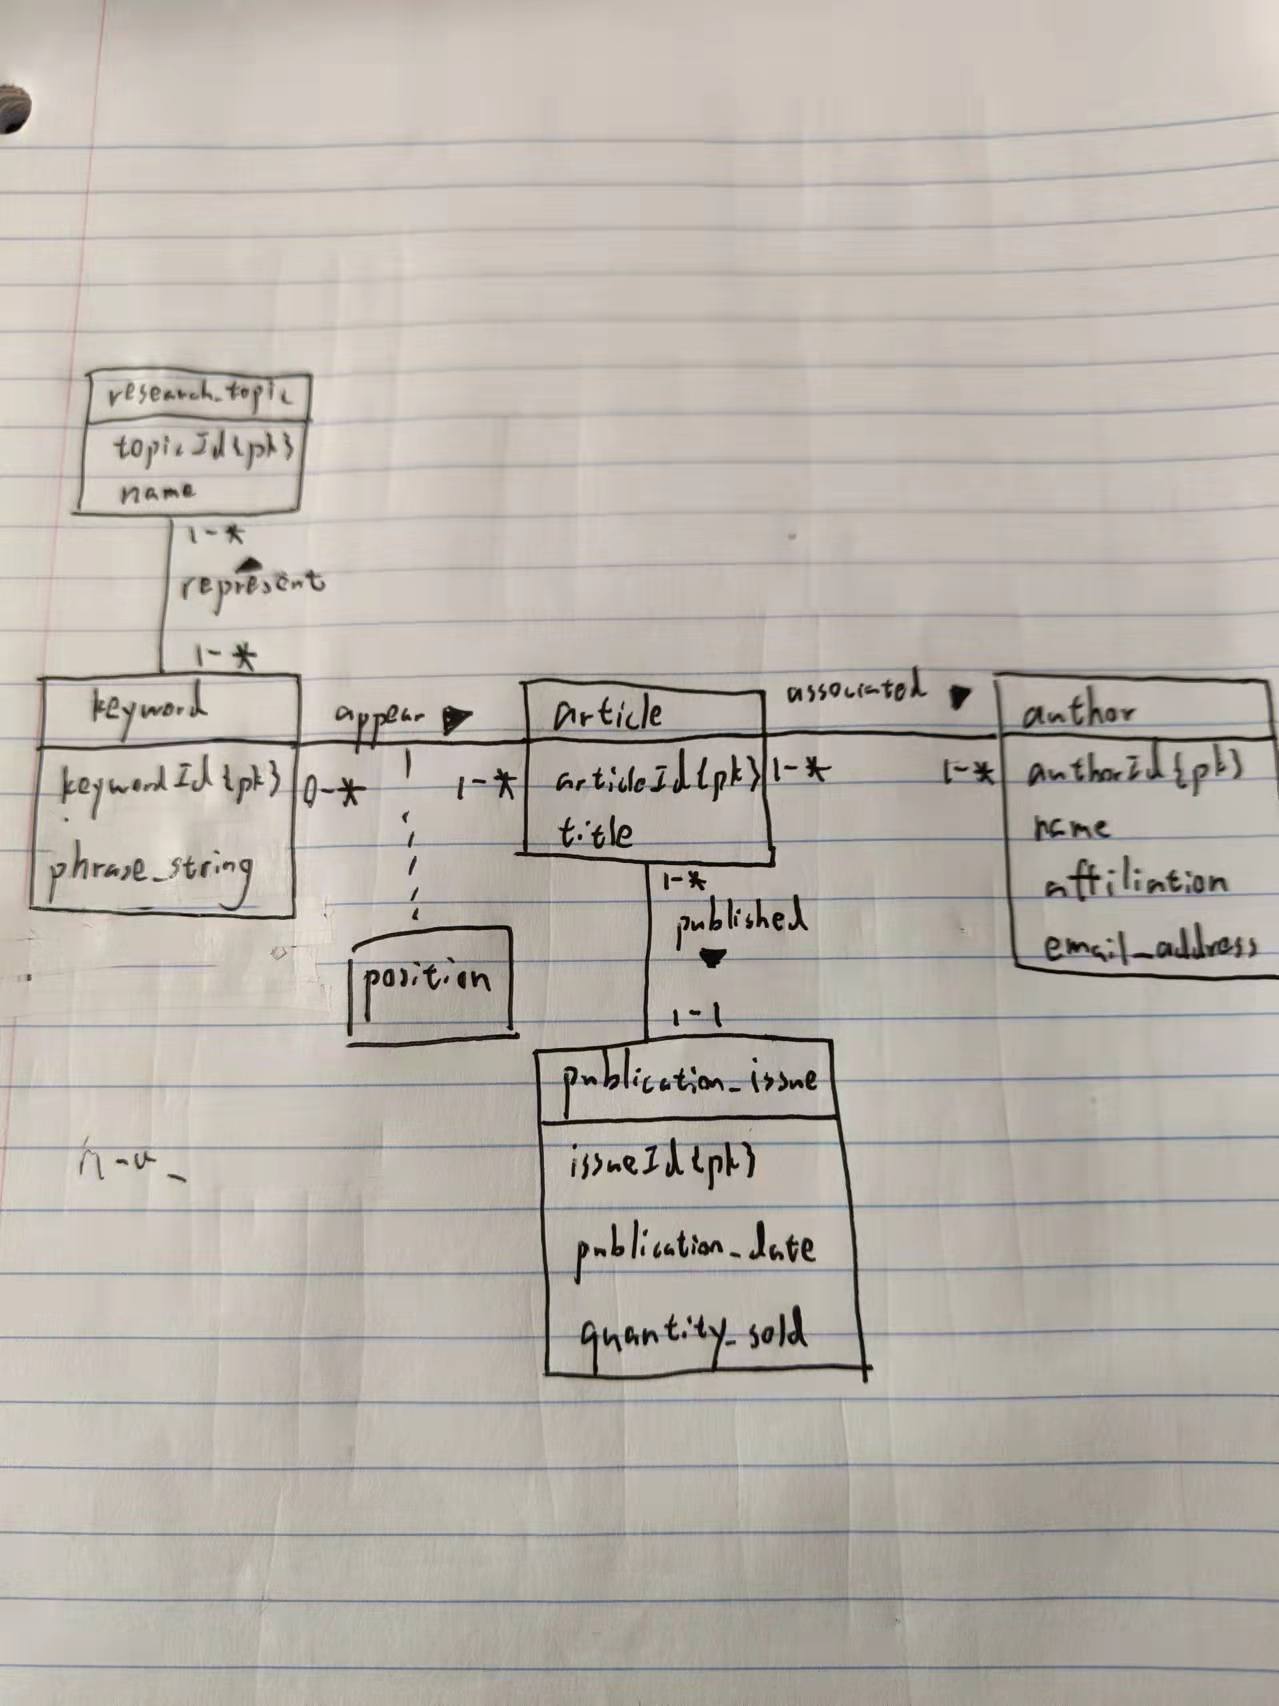 research_topic
topicId{pk}
name
1-*
represent
1-*
keyword
keywordId{pk}
phrase_string
appear
0-*
1-*
position
article
articleId{pk}
title
associated
1-*
1-*
author
authorId{pk}
name
affiliation
email_address
1-*
published
1-1
publication_issue
issueId{pk}
publication_date
quantity_sold